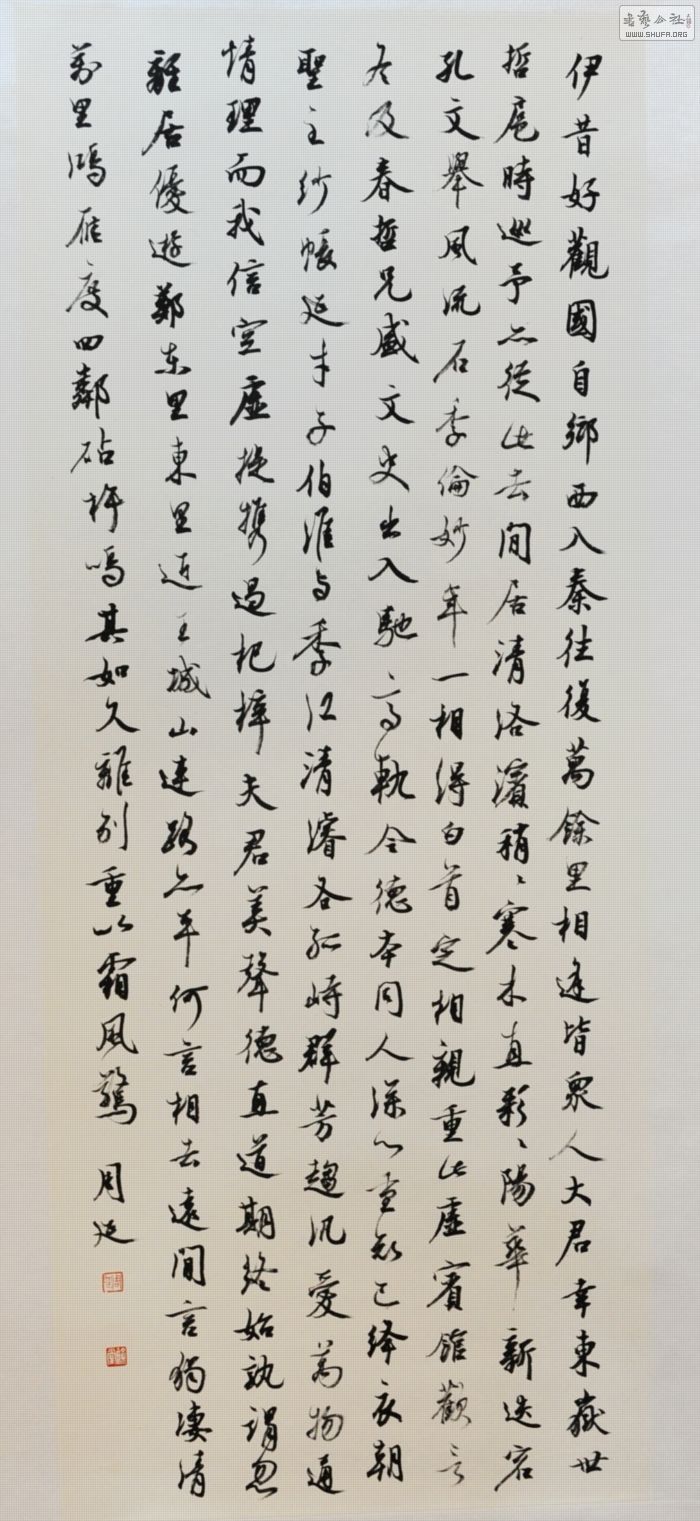 伊昔好觀國自鄉西入秦往復萬餘里相逢皆眾人大君幸東嶽世
哲扈時巡予亦從此去閒居清洛濱稍〻寒木直彩〻陽華新迭宕
孔文舉風流石季倫妙年一相得白首定相親重此虛賓館歡言
冬及春哲兄盛文史出入馳高軌令德本同人深心重知己絳衣朝
聖主紗帳延才子伯淮与季江清濬各孤峙群芳趨汎愛萬物通
情理而我信空虛提攜過杞梓夫君美聲德直道期終始孰謂忽
離居優遊鄭東里東里近王城山連路亦平何言相去遠閒言獨淒清
萬里鴻雁度四鄰砧杵鳴其如久離別重以霜風驚 周延
書藝公社
WWW.SHUFA.ORG